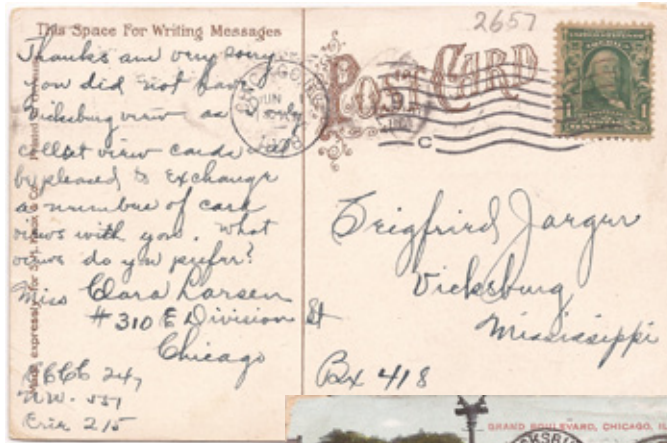 2657
This Space For Writing Messages
POST CARD
Thanks am very sorry
you did not have
Vicksburg view as I only
collect view cards will
be pleased to exchange
a number of card
views with you. What
views do you prefer?
Miss Clara Larsen
#310 E Division St
Chicago
247
U.W. 551
Erie 215
CHICAGO, ILL.
JUN
C
1
Seigfried Jarger
Vicksburg
Mississippi
Bx 418
GRAND BOULEVARD, CHICAGO, IL